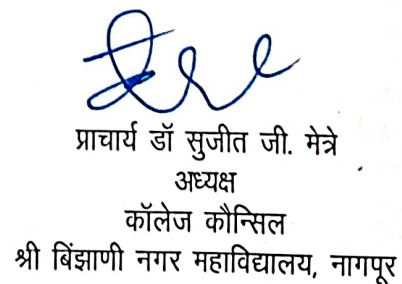 प्राचार्य डॉ सुजीत जी. मेत्रे
अध्यक्ष
कॉलेज कौन्सिल
श्री बिंझाणी नगर महाविद्यालय, नागपूर